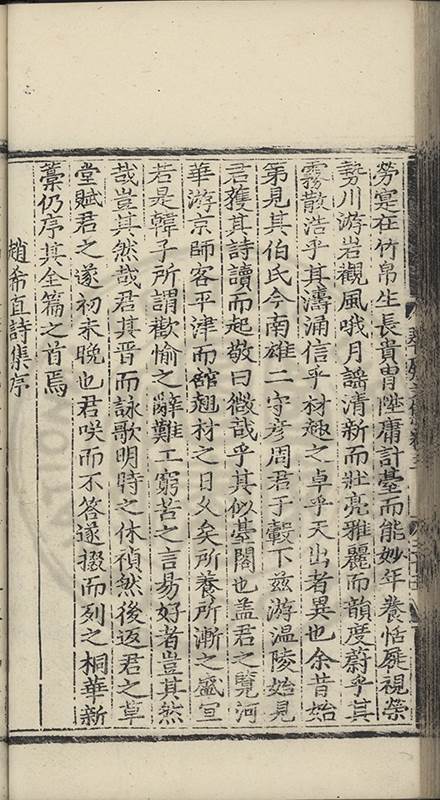 勞寔在竹帛生長貴胄陞庸計臺而能妙年養恬屣視榮
勢川游岩觀風哦月謠清新而壯亮雅麗而韻度蔚乎其
霧散浩乎其濤涌信乎材趣之卓乎天出者異也余昔始
第見其伯氏今南雄二守彦周君于轂下兹游温陵始見
君獲其詩讀而起敬曰微哉乎其似臺閣也盖君之覽河
華游京師客平津而館翹材之日乆矣所養所漸之盛宣
若是韓子所謂歡愉之辭難工窮苦之言易好者豈其然
哉豈其然哉君其晋而詠歌明時之休禎然後返君之草
堂賦君之遂初未晚也君咲而不答遂掇而列之桐華新
藁仍序其全篇之首焉
趙希直詩集序